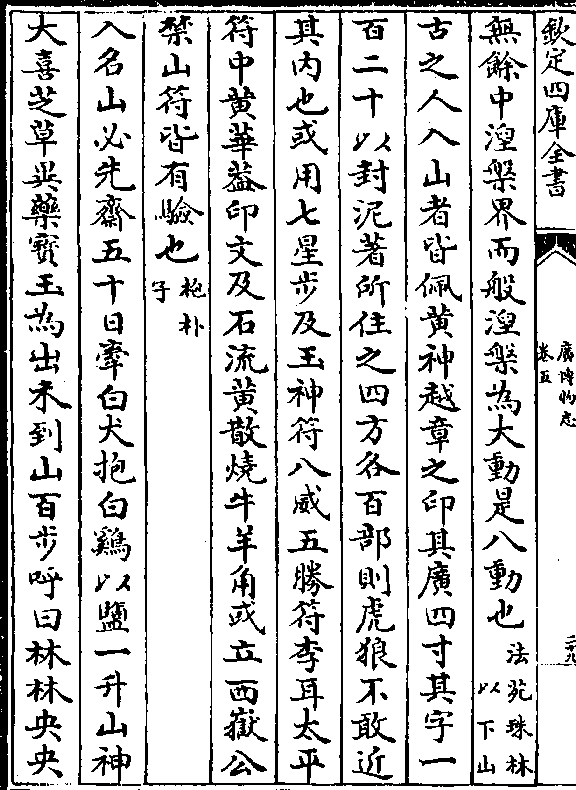 欽定四庫全書
廣博物志
卷五
二十九
無餘中湼槃界而般湼槃為大動是八動也法苑珠林以下山
古之人入山者皆佩黄神越章之印其廣四寸其字一
百二十以封泥著所住之四方各百部則虎狼不敢近
其内也或用七星步及玉神符八威五勝符李耳太平
符中黄華葢印文及石流黄散燒牛羊角或立西嶽公
禁山符皆有驗也抱朴子
入名山必先齋五十日牽白犬抱白鷄以鹽一升山神
大喜芝草異藥寳玉為出未到山百步呼曰林林央央